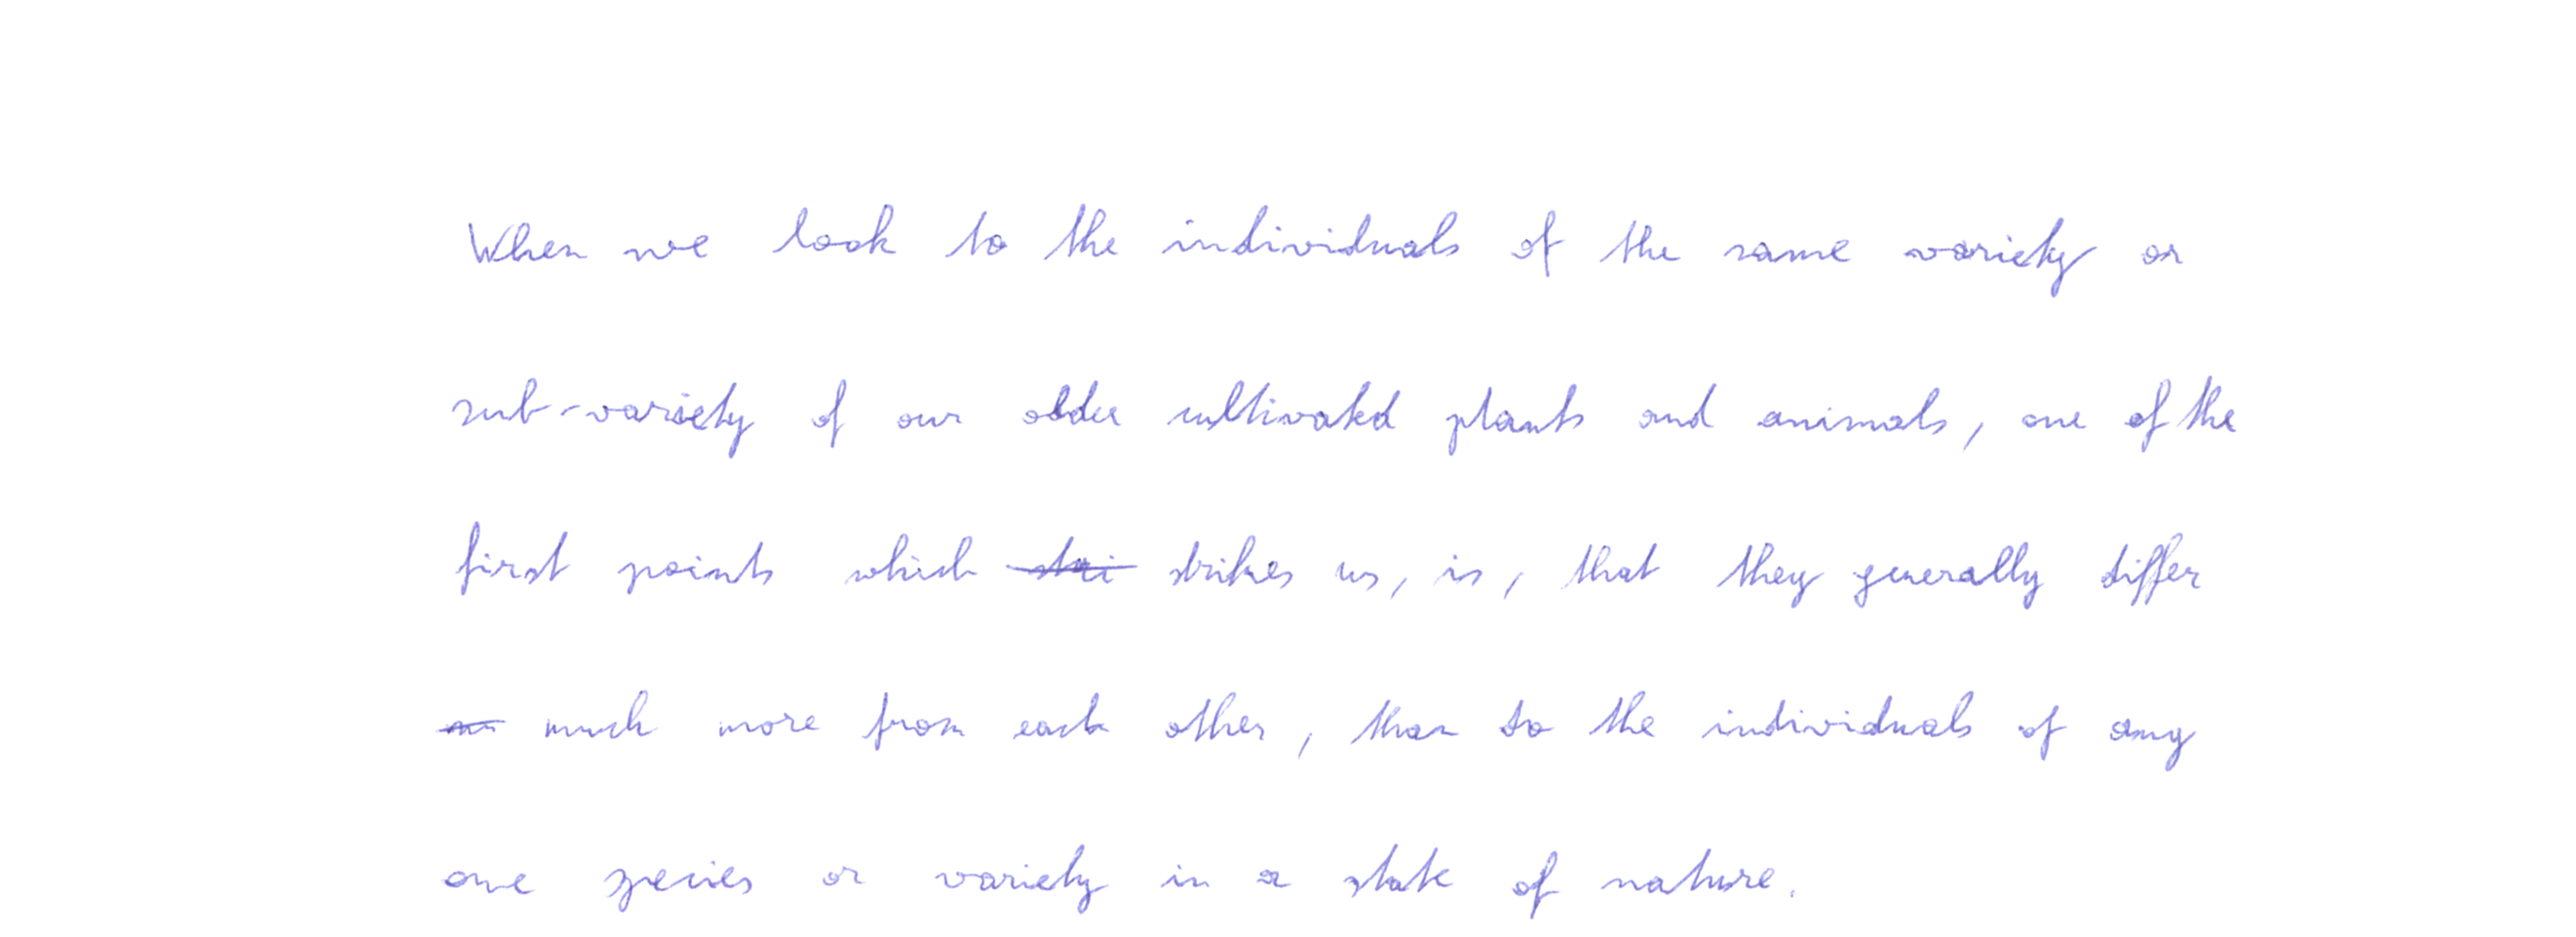 When we look to the individuals of the same variety or
sub-variety of our older cultivated plants and animals, one of the
first points which stri strikes us, is, that they generally differ
much more from each other, than do the individuals of any
one species or variety in a state of nature.